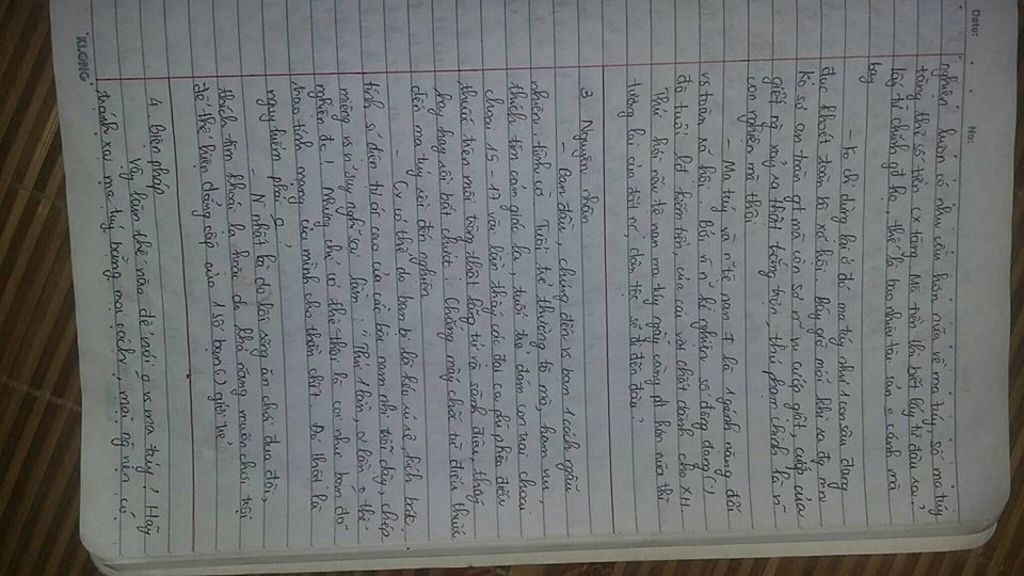 Date: No:
nghiện luôn có nhu cầu hơn nữa về ma túy, số ma túy
tăng thì số tiền cx tăng. Mà tiền thì biết lấy từ đâu ra,
lấy từ chính gđ họ, thế là bao nhiêu tài sản cánh mà
bay
- Ko chỉ dừng lại ở đó ma túy như 1 con sâu đang
đục khoét toàn bộ xã hội. Bây giờ mỗi khi ra
ko sợ an toàn gt mà còn sợ n~ vụ cướp giật, cướp của
giết ng xảy ra thật trắng trợn, thủ phạm chính là n~
con nghiện ma thôi
- Ma túy và n~ tệ nạn # là 1 gánh nặng đối
vs toàn xã hội. Bởi vì n~ kẻ nghiện số đông đang ()
độ tuổi lđ kiếm tiền, của cải vật chất dành cho XH
Thử hỏi nếu tệ nạn ma túy ngày càng pt hơn nữa thì
tương lai của đất nc, dân tộc sẽ đi đến đâu?
3 Nguyên nhân
- Ban đầu, chúng đến vs bạn 1 cách ngẫu
nhiên, tình cờ. Tuổi trẻ thường tò mò, ham vui,
thích tìm cảm giác lạ, tuổi trẻ, đám con trai choai
choai 15 - 17 vài lần thấy các đại ca phì phèo điếu
thuốc trên môi trông thật lãng tử và sành điệu, thấy
hay hay rồi bắt chước. Chẳng mấy chốc từ điếu thuốc
đến ma túy rồi đến nghiện
- Cx có thể do bạn bè lôi kéo rủ rê, kích bác
tính sĩ diện tự ái cao của các bậc nam nhi trỗi dậy, chép
miệng vs n~ suy nghĩ sai lầm: "Thử 1 lần, 2 lần thế
nghiện đc! Nhưng chỉ có thế thôi là coi như bạn đã
trao tính mạng của mình cho thần chết. Đó thật là
nguy hiểm phải o?
- N~ nhất là do lối sống ăn chơi đua đòi,
thích tiền khoe của hoặc do khả năng muốn chơi trội
để thể hiện đẳng cấp của 1 số bạn () giới trẻ
4. Biện pháp
Vậy làm thế nào để nói o vs ma túy, Hãy
tránh xa ma túy bằng mọi cách, mọi ng nên có
KLONG